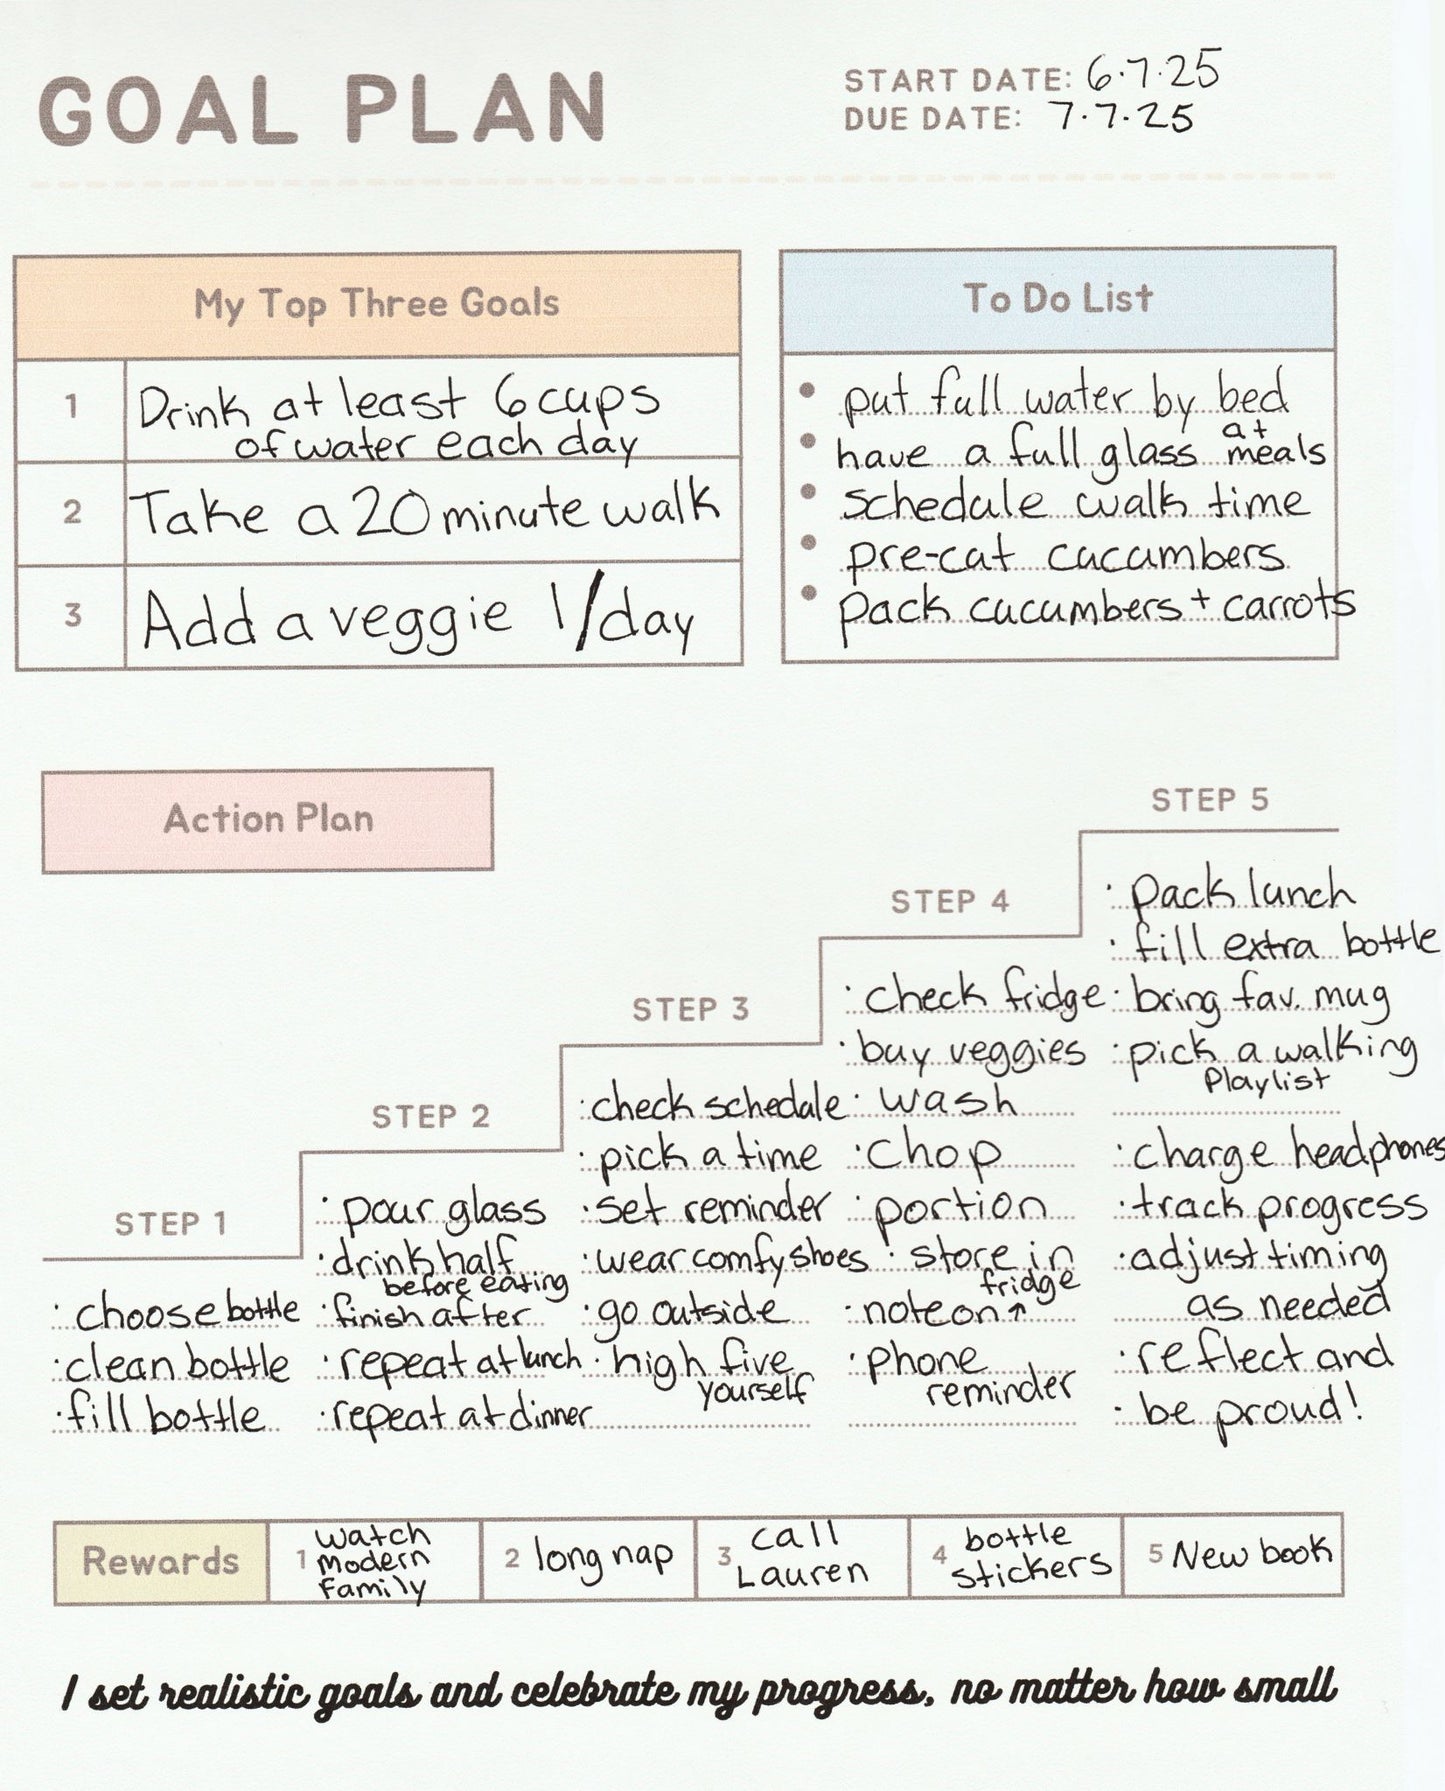 GOAL PLAN
START DATE: 6.7.25
DUE DATE: 7.7.25
My Top Three Goals
1 Drink at least 6 cups
of water each day
2 Take a 20 minute walk
3 Add a veggie 1/day
To Do List
• put full water by bed
• have a full glass at meals
• schedule walk time
• pre-cut cucumbers
• pack cucumbers + carrots
Action Plan
STEP 1
· choose bottle
· clean bottle
· fill bottle
STEP 2
· pour glass
· drink half
before eating
· finish after
· repeat at lunch
· repeat at dinner
STEP 3
· check schedule
· pick a time
· set reminder
· wear comfy shoes
· go outside
· high five
yourself
STEP 4
· check fridge
· buy veggies
· wash
· chop
· portion
· store in
fridge
· note on ↑
· phone
reminder
STEP 5
· pack lunch
· fill extra bottle
· bring fav. mug
· pick a walking
Playlist
· charge headphones
· track progress
· adjust timing
as needed
· reflect and
· be proud!
Rewards
1 watch
modern
family
2 long nap
3 call
Lauren
4 bottle
stickers
5 New book
I set realistic goals and celebrate my progress, no matter how small